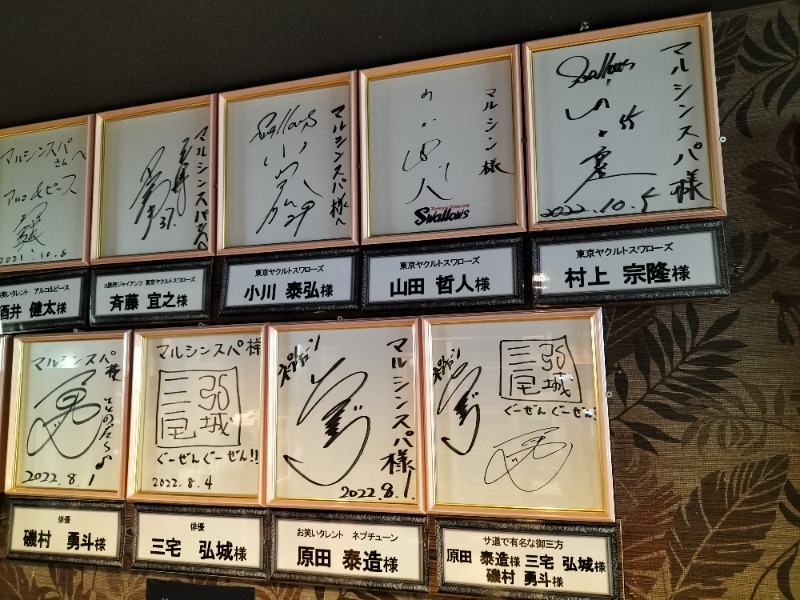 マルシンスパ
さんへ
アルコ&ピース
2021.10.8
マルシンスパさんへ
37.
Swallows
マルシンスパ様へ
29
マルシン様
Tokyo Yakult
Swallows
Swallows
マルシンスパ様
55
2022.10.5
お笑いタレント アルコ&ピース
酒井 健太様
元読売ジャイアンツ 東京ヤクルトスワローズ
斉藤 宜之様
東京ヤクルトスワローズ
小川 泰弘様
東京ヤクルトスワローズ
山田 哲人様
東京ヤクルトスワローズ
村上 宗隆様
マルシンスパ様
ととのたう〜♪
2022.8.1
マルシンスパ様
三宅弘城
ぐーぜんぐーぜん!!
2022.8.4
マルシンスパ様!
2022.8.1
三宅弘城
ぐーぜんぐーぜん!!
俳優
磯村 勇斗様
俳優
三宅 弘城様
お笑いタレント ネプチューン
原田 泰造様
サ道で有名な御三方
原田 泰造様 三宅 弘城様
磯村 勇斗様